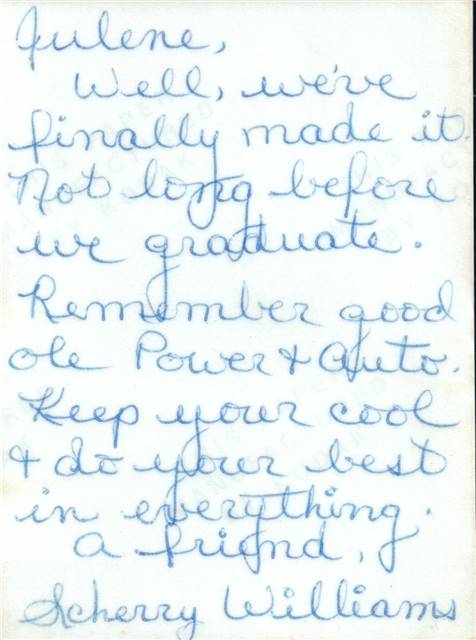 Julene,
Well, we've
finally made it.
Not long before
we graduate.
Remember good
ole Power & Auto.
Keep your cool
& do your best
in everything.
A friend,
Scherry Williams